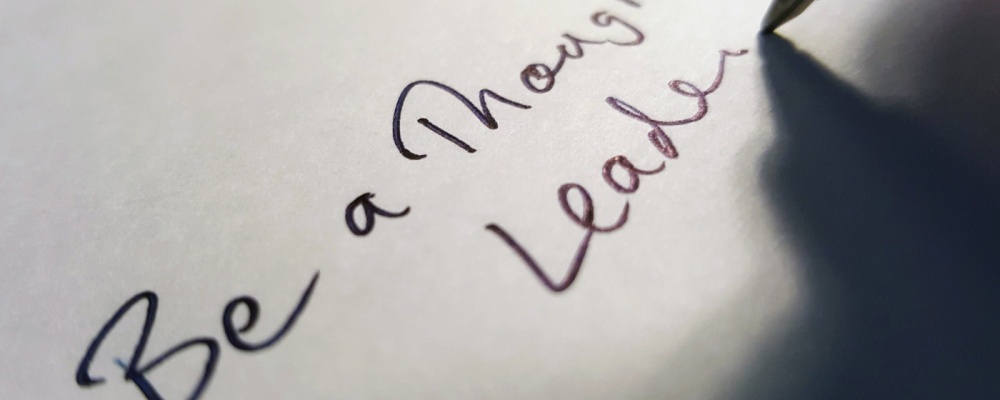 Be a Though
Leader